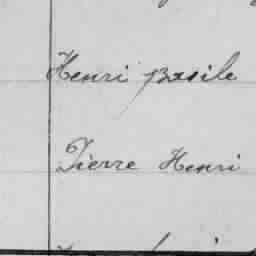 Henri Basile
Pierre Henri